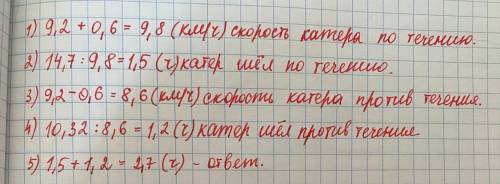 1) 9,2 + 0,6 = 9,8 (км/ч) скорость катера по течению.
2) 14,7 : 9,8 = 1,5 (ч) катер шёл по течению.
3) 9,2 - 0,6 = 8,6 (км/ч) скорость катера против течения.
4) 10,32 : 8,6 = 1,2 (ч) катер шёл против течения
5) 1,5 + 1,2 = 2,7 (ч) - ответ.